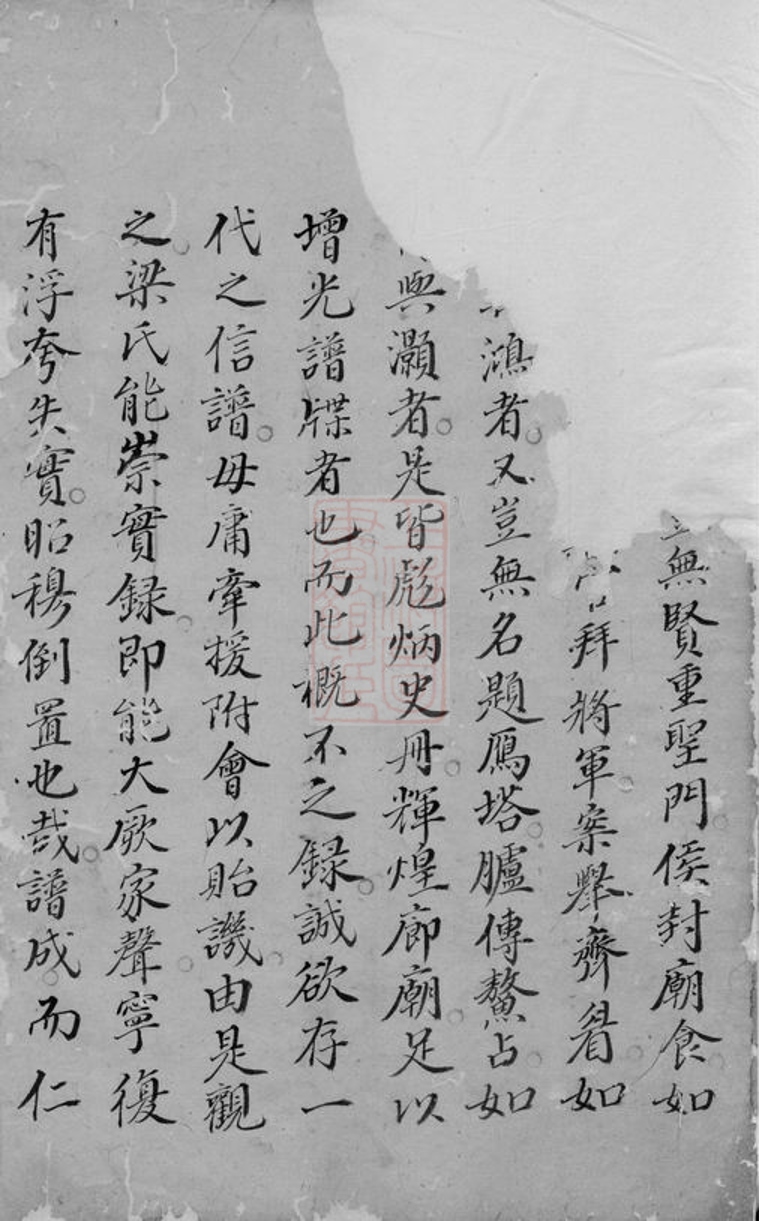 無賢重聖門侯封廟食如
拜將軍案舉齊眉如
鴻者又豈無名題鴈塔臚傳鰲占如
與灝者是皆彪炳史冊輝煌廊廟足以
增光譜牒者也而此概不之録誠欲存一
代之信譜毋庸牽援附會以貽譏由是觀
之梁氏能崇實録即能大厥家聲寧復
有浮夸失實昭穆倒置也哉譜成而仁